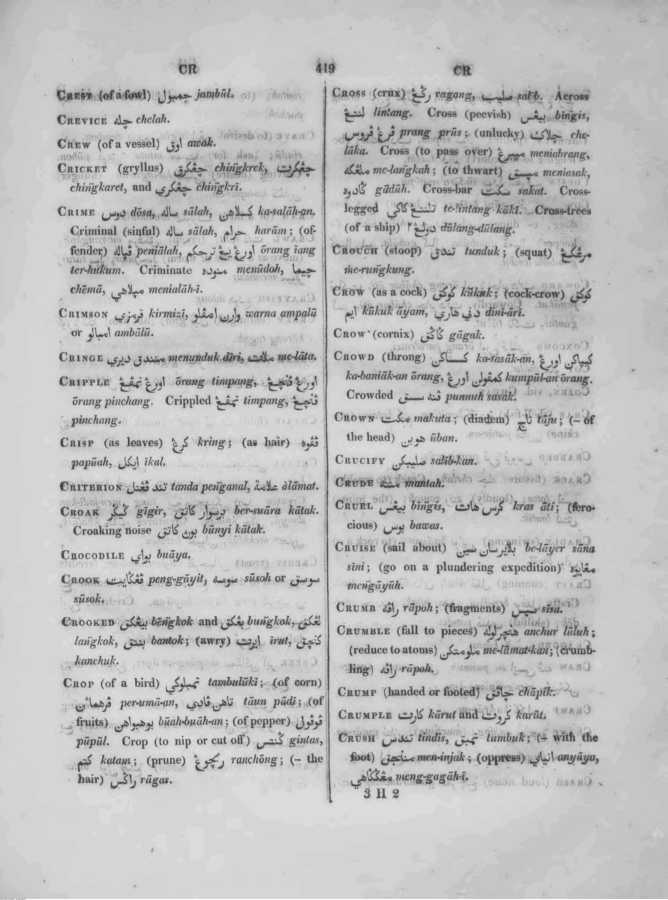 CR 419 CR
CREST (of a fowl) جمبول jambūl.
CREVICE چله chelah.
CREW (of a vessel) اوق awak.
CRICKET (gryllus) چڠکرق chiṅgkrek, چڠکرت
chiṅgkaret, and چڠکري chiṅgkrī.
CRIME دوس dōsa, ساله sālah, کسلاهن ka-salāh-an.
Criminal (sinful) ساله sālah, حرام harām; (of-
fender) ڤڽاله peniālah, اورڠ يڠ ترحکم ōrang īang
ter-hūkum. Criminate منوده menūdoh, چيما
chēmā, مڽلاهي menialāh-ī.
CRIMSON قرمزي kirmizī, وارن امڤلو warna ampalū
or امبالو ambālū.
CRINGE منندق ديري menunduk dīri, ملات me-lāta.
CRIPPLE اورڠ تمڤڠ ōrang timpang, اورڠ ڤنچڠ
ōrang pinchang. Crippled تمڤڠ timpang, ڤنچڠ
pinchang.
CRISP (as leaves) کرڠ kring; (as hair) ڤڤوه
papūah, ايکل īkal.
CRITERION تند ڤڠنل tanda peṅganal, علامة ālāmat.
CROAK گيگر gīgir, برسوار کاتق ber-suāra kātak.
Croaking noise بون کاتق būnyi kātak.
CROCODILE بواي buāya.
CROOK ڤڠگايت peng-gāyit, سوسه sūsoh or سوسق
sūsok.
CROOKED بيڠکق bēṅgkok and بڠکق buṅgkok, لڠکق
laṅgkok, بنتق bantok; (awry) ايرت īrut, کنچق
kanchuk.
CROP (of a bird) تمبلوکي tambulūki; (of corn)
ڤرهماٴن per-umā-an, تاهن ڤادي tāun pādi; (of
fruits) بوهبواهن būah-buāh-an; (of pepper) ڤوڤول
pūpūl. Crop (to nip or cut off) گنتس gintas,
کتم katam; (prune) رنچوڠ ranchōng; (– the
hair) راگس rāgas.
CROSS (crux) رگڠ ragang, صليب salīb. Across
لنتڠ lintang. Cross (peevish) بيڠس bīngis,
ڤرڠ ڤروس prang prūs; (unlucky) چلاک che-
lāka. Cross (to pass over) مڽبرڠ meniabrang,
ملڠکه me-langkah; (to thwart) مڽسق meniasak,
گادوه gādūh. Cross-bar سکت sakat. Cross-
legged تلنتڠ کاکي te-lintang kākī. Cross-trees
(of a ship) دولڠ٢ dūlang-dūlang.
CROUCH (stoop) تندق tunduk; (squat) مرڠکڠ
me-rungkung.
CROW (as a cock) کوکق kūkuk; (cock-crow) کوکق
ايم kūkuk āyam, دني هاري dīnī-āri.
CROW (cornix) گاگق gāgak.
CROWD (throng) کساکن ka-sasāk-an, کبڽاکن اورڠ
ka-baniāk-an ōrang, کمڤولن اورڠ kumpūl-an ōrang.
Crowded ڤنه سسق punnuh sasak.
CROWN مکت makuta; (diadem) تاج tāju; (– of
the head) هوبن ūban.
CRUCIFY صليبکن salīb-kan.
CRUDE منته mantah.
CRUEL بيڠس bīngis, کرس هات kras āti; (fero-
cious) بوس bawas.
CRUISE (sail about) بلاير سان سين be-lāyer sāna
sini; (go on a plundering expedition) مڠايه
meṅgāyūh.
CRUMB راڤه rāpoh; (fragments) سيس sīsa.
CRUMBLE (fall to pieces) هنچر لوله anchur lūluh;
(reduce to atoms) ملومتکن me-lūmat-kan; (crumb-
ling) راڤه rāpoh.
CRUMP (handed or footed) چاڤق chāpik.
CRUMPLE کارت kārut and کروت karūt.
CRUSH تندس tindis, تمبق tumbuk; (– with the
foot) منانجق men-injak; (oppress) انياي anyāya,
مڠگگاهي meng-gagāh-ī.
3 H 2